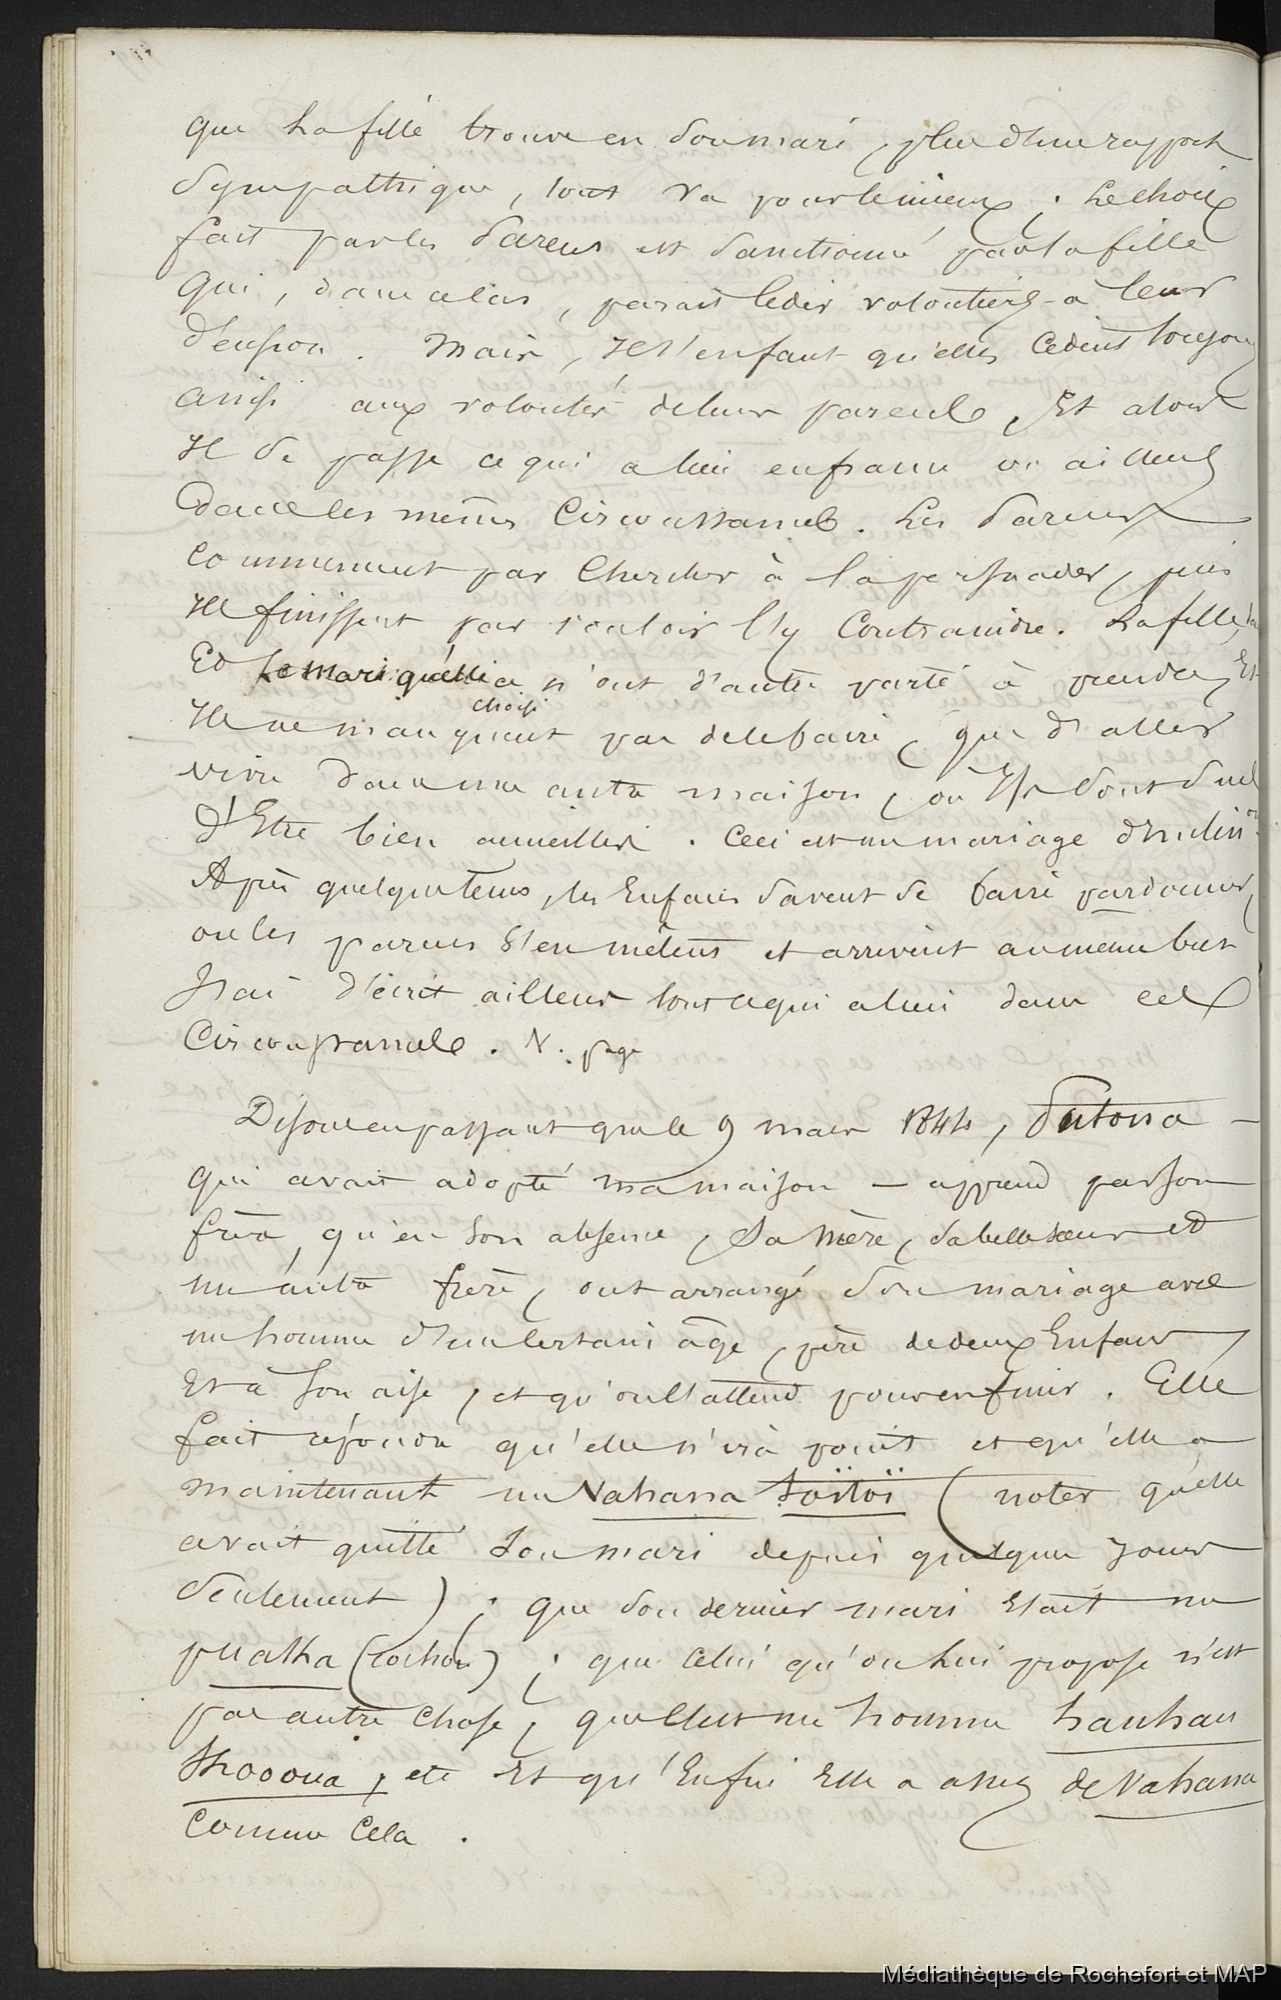 que la fille trouve en son mari, plus d'une rapport
Sympathique, tout va pour le mieux ; le choix
fait par les Parens est Sanctionné par la fille
qui, dans ce cas, parait ceder volontiers à leur
Mais, Il s'enfaut qu'elles Cedent toujours
ainsi aux volontés de leurs parents, Et alors
Il se passe ce qui a lieu en france ou ailleurs
Dans les mêmes Circonstances. Les Parens
Commencent par Chercher à la persuader, puis
Ils finissent par vouloir l'y Contraindre. La fille,
Et le mari qu'elle a choisi n'ont d'autre parti à prendre, Et
Ils ne manquent pas de le faire, que d'aller
vivre dans une autre maison, où Ils sont surs
d'Etre bien accueillis. Ceci est un mariage
Après quelque tems, les Enfans savent se faire pardonner,
ou les parens s'en mêlent et arrivent au même but
J'ai décrit ailleurs tout ce qui a lieu dans ces
Circonstances. V. page
Disons en passant que le 9 mars 1844, Putona —
qui avait adopté ma maison — apprend par son
frère, qu'en son absence, Sa Mère, sa belle soeur et
un autre frère, ont arrangé son mariage avec
un homme d'un certain âge, père de deux Enfans,
Et à son aise, et qu'on l'attend pour en finir. Elle
fait repondre qu'elle n'ira point et qu'elle a
maintenant un Vahana toïtoï (notez qu'elle
avait quitté son mari depuis quelques jours
Seulement) ; que son dernier mari Etait un
puaka (Cochon) ; que Celui qu'on lui propose n'est
pas autre Chose, que c'est un homme hauhau
etc Et qu'Enfin Elle a assez de Vahana
Comme Cela.
Médiathèque de Rochefort et MAP